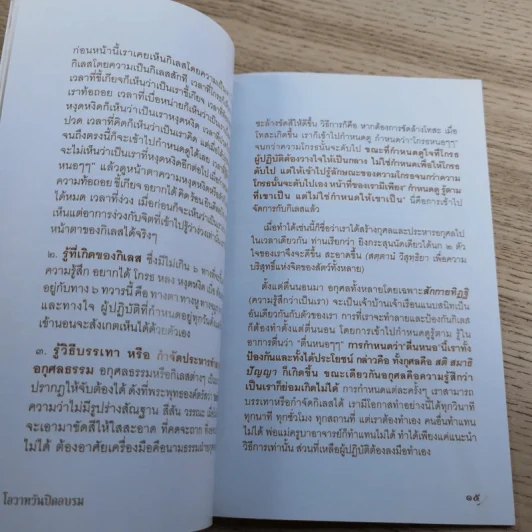 ก่อนหน้านี้เราเคยเห็นกิเลสโดยความเป็น
กิเลสโดยความเป็นกิเลสสักที เวลาที่โกรธก็
เวลาที่ขี้เกียจก็เห็นว่าเป็นขี้เกียจ เวลา
ท้อถอย เวลาที่เบื่อหน่ายก็เห็นว่าเป็น
หงุดหงิดก็เห็นว่าเป็นเราหงุดหงิด เวลาที่
ปวด เวลาที่คิดก็เห็นว่าเป็นเราคิด แต่เมื่อ
จนถึงตรงนี้ก็จะเข้าไปกำหนดดูได้เลย เวลา
จะไม่เห็นว่าเป็นเราที่หงุดหงิดอีกต่อไป
หนอๆๆ" แล้วดูหน้าตาความหงุดหงิดหรือ
ความท้อถอย ขี้เกียจ อยากได้ คิด ร้อน
ได้หมด เวลาที่ง่วง เมื่อก่อนก็จะเห็นว่า
เห็นแต่อาการง่วงกับจิตที่เข้าไปรู้ว่าง่วง
หน้าตาของกิเลสได้จริงๆ
๒. รู้ที่เกิดของกิเลส ซึ่งมีไม่เกิน ๖ ทาง
ความรู้สึก อยากได้ โกรธ หลง หงุดหงิด
อยู่กับทาง ๖ ทวารนี้ คือ ทางตา ทางหู
และทางใจ ผู้ปฏิบัติที่กำหนดอยู่ทุกวัน
เข้านอนจะสังเกตเห็นได้ด้วยตัวเอง
๓. รู้วิธีบรรเทา หรือ กำจัดประหาร
อกุศลธรรม อกุศลธรรมหรือกิเลสต่างๆ
ปรากฏให้จับต้องได้ ดังที่พระพุทธองค์ตรัส
ความว่าไม่มีรูปร่างสัณฐาน สีสัน วรรณะ
จะเอามาขัดสีให้ใสสะอาด ที่คดจะถาก
ไม่ได้ ต้องอาศัยเครื่องมือคือนามธรรมฝ่าย
โอวาทวันปิดอบรม
ชะล้างขัดสีให้ดีขึ้น วิธีการก็คือ หากต้องการขัดล้างโทสะ เมื่อ
โทสะเกิดขึ้น เราก็เข้าไปกำหนดดู กำหนดว่า"โกรธหนอๆๆ"
จนกว่าความโกรธนั้นจะดับไป ขณะที่กำหนดดูใจที่โกรธ
ผู้ปฏิบัติต้องวางใจให้เป็นกลาง ไม่ใช่กำหนดเพื่อให้โกรธ
ดับไป แต่ให้เข้าไปรู้ลักษณะของความโกรธจนกว่าความ
โกรธนั้นจะดับไปเอง หน้าที่ของเรามีเพียง" กำหนดดู รู้ตาม
ที่เขาเป็น แต่ไม่ใช่กำหนดให้เขาเป็น" นี่คือการเข้าไป
จัดการกับกิเลสแล้ว
เมื่อทำได้เช่นนี้ก็ชื่อว่าเราได้สร้างกุศลและประหารอกุศลไป
ในเวลาเดียวกัน ท่านเรียกว่า ยิงกระสุนนัดเดียวได้นก ๒ ตัว
ใจของเราจึงจะดีขึ้น สะอาดขึ้น (สตฺตานํ วิสุทฺธิยา เพื่อความ
บริสุทธิ์แห่งจิตของสัตว์ทั้งหลาย)
ตั้งแต่ตื่นนอนมา อกุศลทั้งหลายโดยเฉพาะสักกายทิฏฐิ
(ความรู้สึกว่าเป็นเรา) จะเป็นเจ้าบ้านเจ้าเรือนแนบสนิทเป็น
อันเดียวกันกับตัวของเรา การที่เราจะทำลายและป้องกันกิเลส
ก็ต้องทำตั้งแต่ตื่นนอน โดยการเข้าไปกำหนดดูรู้ตาม รู้ใน
อาการตื่นว่า "ตื่นหนอๆๆ" การกำหนดว่า"ตื่นหนอ"นี้เราทั้ง
ป้องกันและทั้งได้ประโยชน์ กล่าวคือ ทั้งกุศลคือ สติ สมาธิ
ปัญญา ก็เกิดขึ้น ขณะเดียวกันอกุศลคือความรู้สึกว่า
เป็นเราก็ย่อมเกิดไม่ได้ การกำหนดแต่ละครั้งๆ เราสามารถ
บรรเทาหรือกำจัดกิเลสได้ เรามีโอกาสทำอย่างนี้ได้ทุกวินาที
ทุกนาที ทุกชั่วโมง ทุกสถานที่ แต่เราต้องทำเอง คนอื่นทำแทน
ไม่ได้ พ่อแม่ครูบาอาจารย์ก็ทำแทนไม่ได้ ทำได้เพียงแค่แนะนำ
วิธีการเท่านั้น ส่วนที่เหลือผู้ปฏิบัติต้องลงมือทำเอง
๑๕